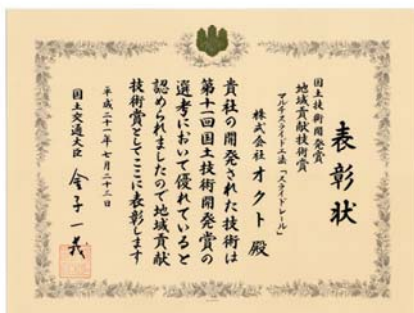 表彰状
国土技術開発賞
地域貢献技術賞
マルチスライド工法「スライドレール」
株式会社 オクト 殿
貴社の開発された技術は
第十一回国土技術開発賞の
選考において優れていると
認められましたので地域貢献
技術賞としてここに表彰します
平成二十一年七月二十二日
国土交通大臣 金子一義